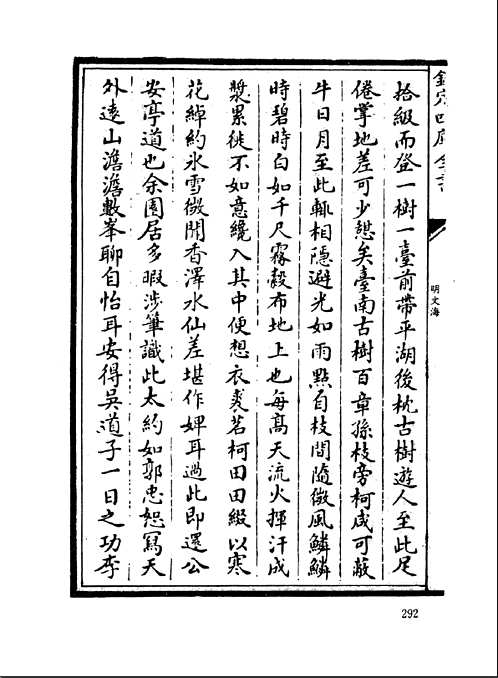 欽定四庫全書
明文海
拾級而登一樹一臺前帶平湖後枕古樹遊人至此足
倦掌地差可少憇矣臺南古樹百章孫枝旁柯咸可蔽
牛日月至此輒相隱避光如雨點自枝間隨微風鱗鱗
時碧時白如千尺霧縠布地上也每高天流火揮汗成
漿累徙不如意纔入其中便想衣裘茗柯田田綴以寒
花綽約氷雪微開香澤水仙差堪作婢耳過此即還公
安亭道也余園居多暇涉筆識此太約如郭忠恕寫天
外遠山澹澹數峯聊自怡耳安得吳道子一日之功李
292